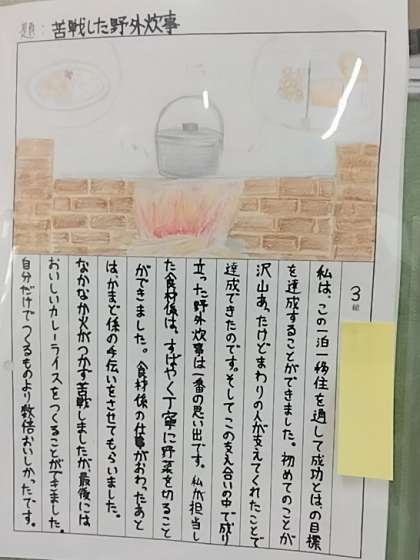 題:苦戦した野外炊事
3組
私は、この一泊一移住を通して成功とは、の目標
を達成することができました。初めてのことが
沢山あったけどまわりの人が支えてくれたことで
達成できたのです。そしてこの支え合いの中で成り
立った野外炊事は一番の思い出です。私が担当し
た食材係は、すばやく丁寧に野菜を切ること
ができました。食材係の仕事がおわったあと
は、かまど係の手伝いをさせてもらいました。
なかなか火がつかず苦戦しましたが、最後には
おいしいカレーライスをつくることができました。
自分だけでつくるものより数倍おいしかったです。